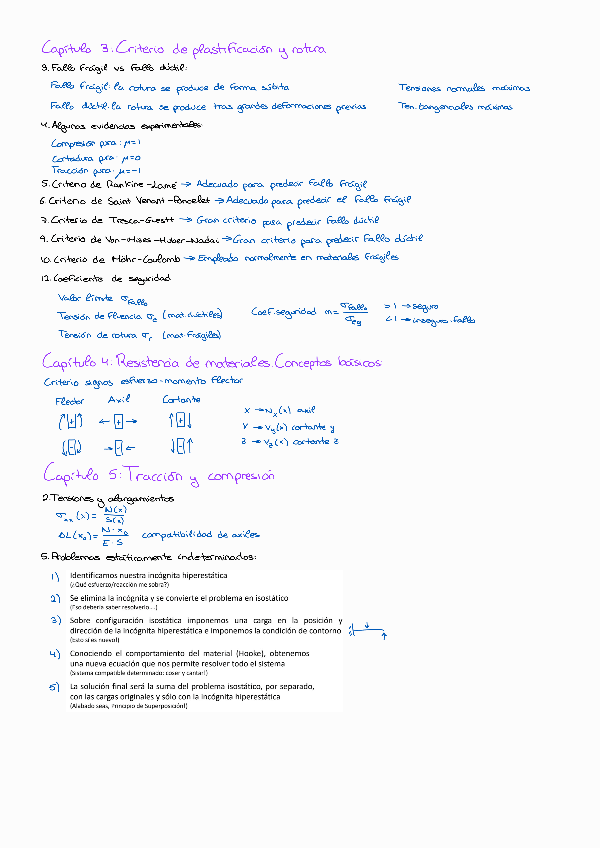 Capítulo 3. Criterio de plastificación y rotura
3. Fallo frágil vs fallo dúctil:
Fallo frágil: la rotura se produce de forma súbita Tensiones normales máximas
Fallo dúctil: la rotura se produce tras grandes deformaciones previas Ten. tangenciales máximas
4. Algunas evidencias experimentales:
Compresión pura: μ=1
Cortadura pura: μ=0
Tracción pura: μ=-1
5. Criterio de Rankine-Lamé → Adecuado para predecir fallo frágil
6. Criterio de Saint Venant-Poncelet → Adecuado para predecir el fallo frágil
7. Criterio de Tresca-Guestt → Gran criterio para predecir fallo dúctil
9. Criterio de Von-Mises-Huber-Nadai → Gran criterio para predecir fallo dúctil
10. Criterio de Mohr-Coulomb → Empleado normalmente en materiales frágiles
12. Coeficiente de seguridad
Valor límite σfallo
Tensión de fluencia σe (mat. dúctiles) Coef. seguridad m = σfallo / σeq = 1 → seguro
< 1 → inseguro. fallo
Tensión de rotura σr (mat. frágiles)
Capítulo 4. Resistencia de materiales. Conceptos básicos:
Criterio signos esfuerzo-momento flector
Flector Axil Cortante
+ + + X → Nx(x) axil
Y → Vy(x) cortante y
- - - Z → Vz(x) cortante z
Capítulo 5: Tracción y compresión
2. Tensiones y alargamientos
σxx(x) = N(x) / S(x)
ΔL(x0) = N·x0 / E·S compatibilidad de axiles
5. Problemas estáticamente indeterminados:
1) Identificamos nuestra incógnita hiperestática
(¿Qué esfuerzo/reacción me sobra?)
2) Se elimina la incógnita y se convierte el problema en isostático
(Eso debería saber resolverlo…)
3) Sobre configuración isostática imponemos una carga en la posición y
dirección de la incógnita hiperestática e imponemos la condición de contorno
(Esto sí es nuevo!)
4) Conociendo el comportamiento del material (Hooke), obtenemos
una nueva ecuación que nos permite resolver todo el sistema
(Sistema compatible determinado: coser y cantar!)
5) La solución final será la suma del problema isostático, por separado,
con las cargas originales y sólo con la incógnita hiperestática
(Alabado seas, Principio de Superposición!)